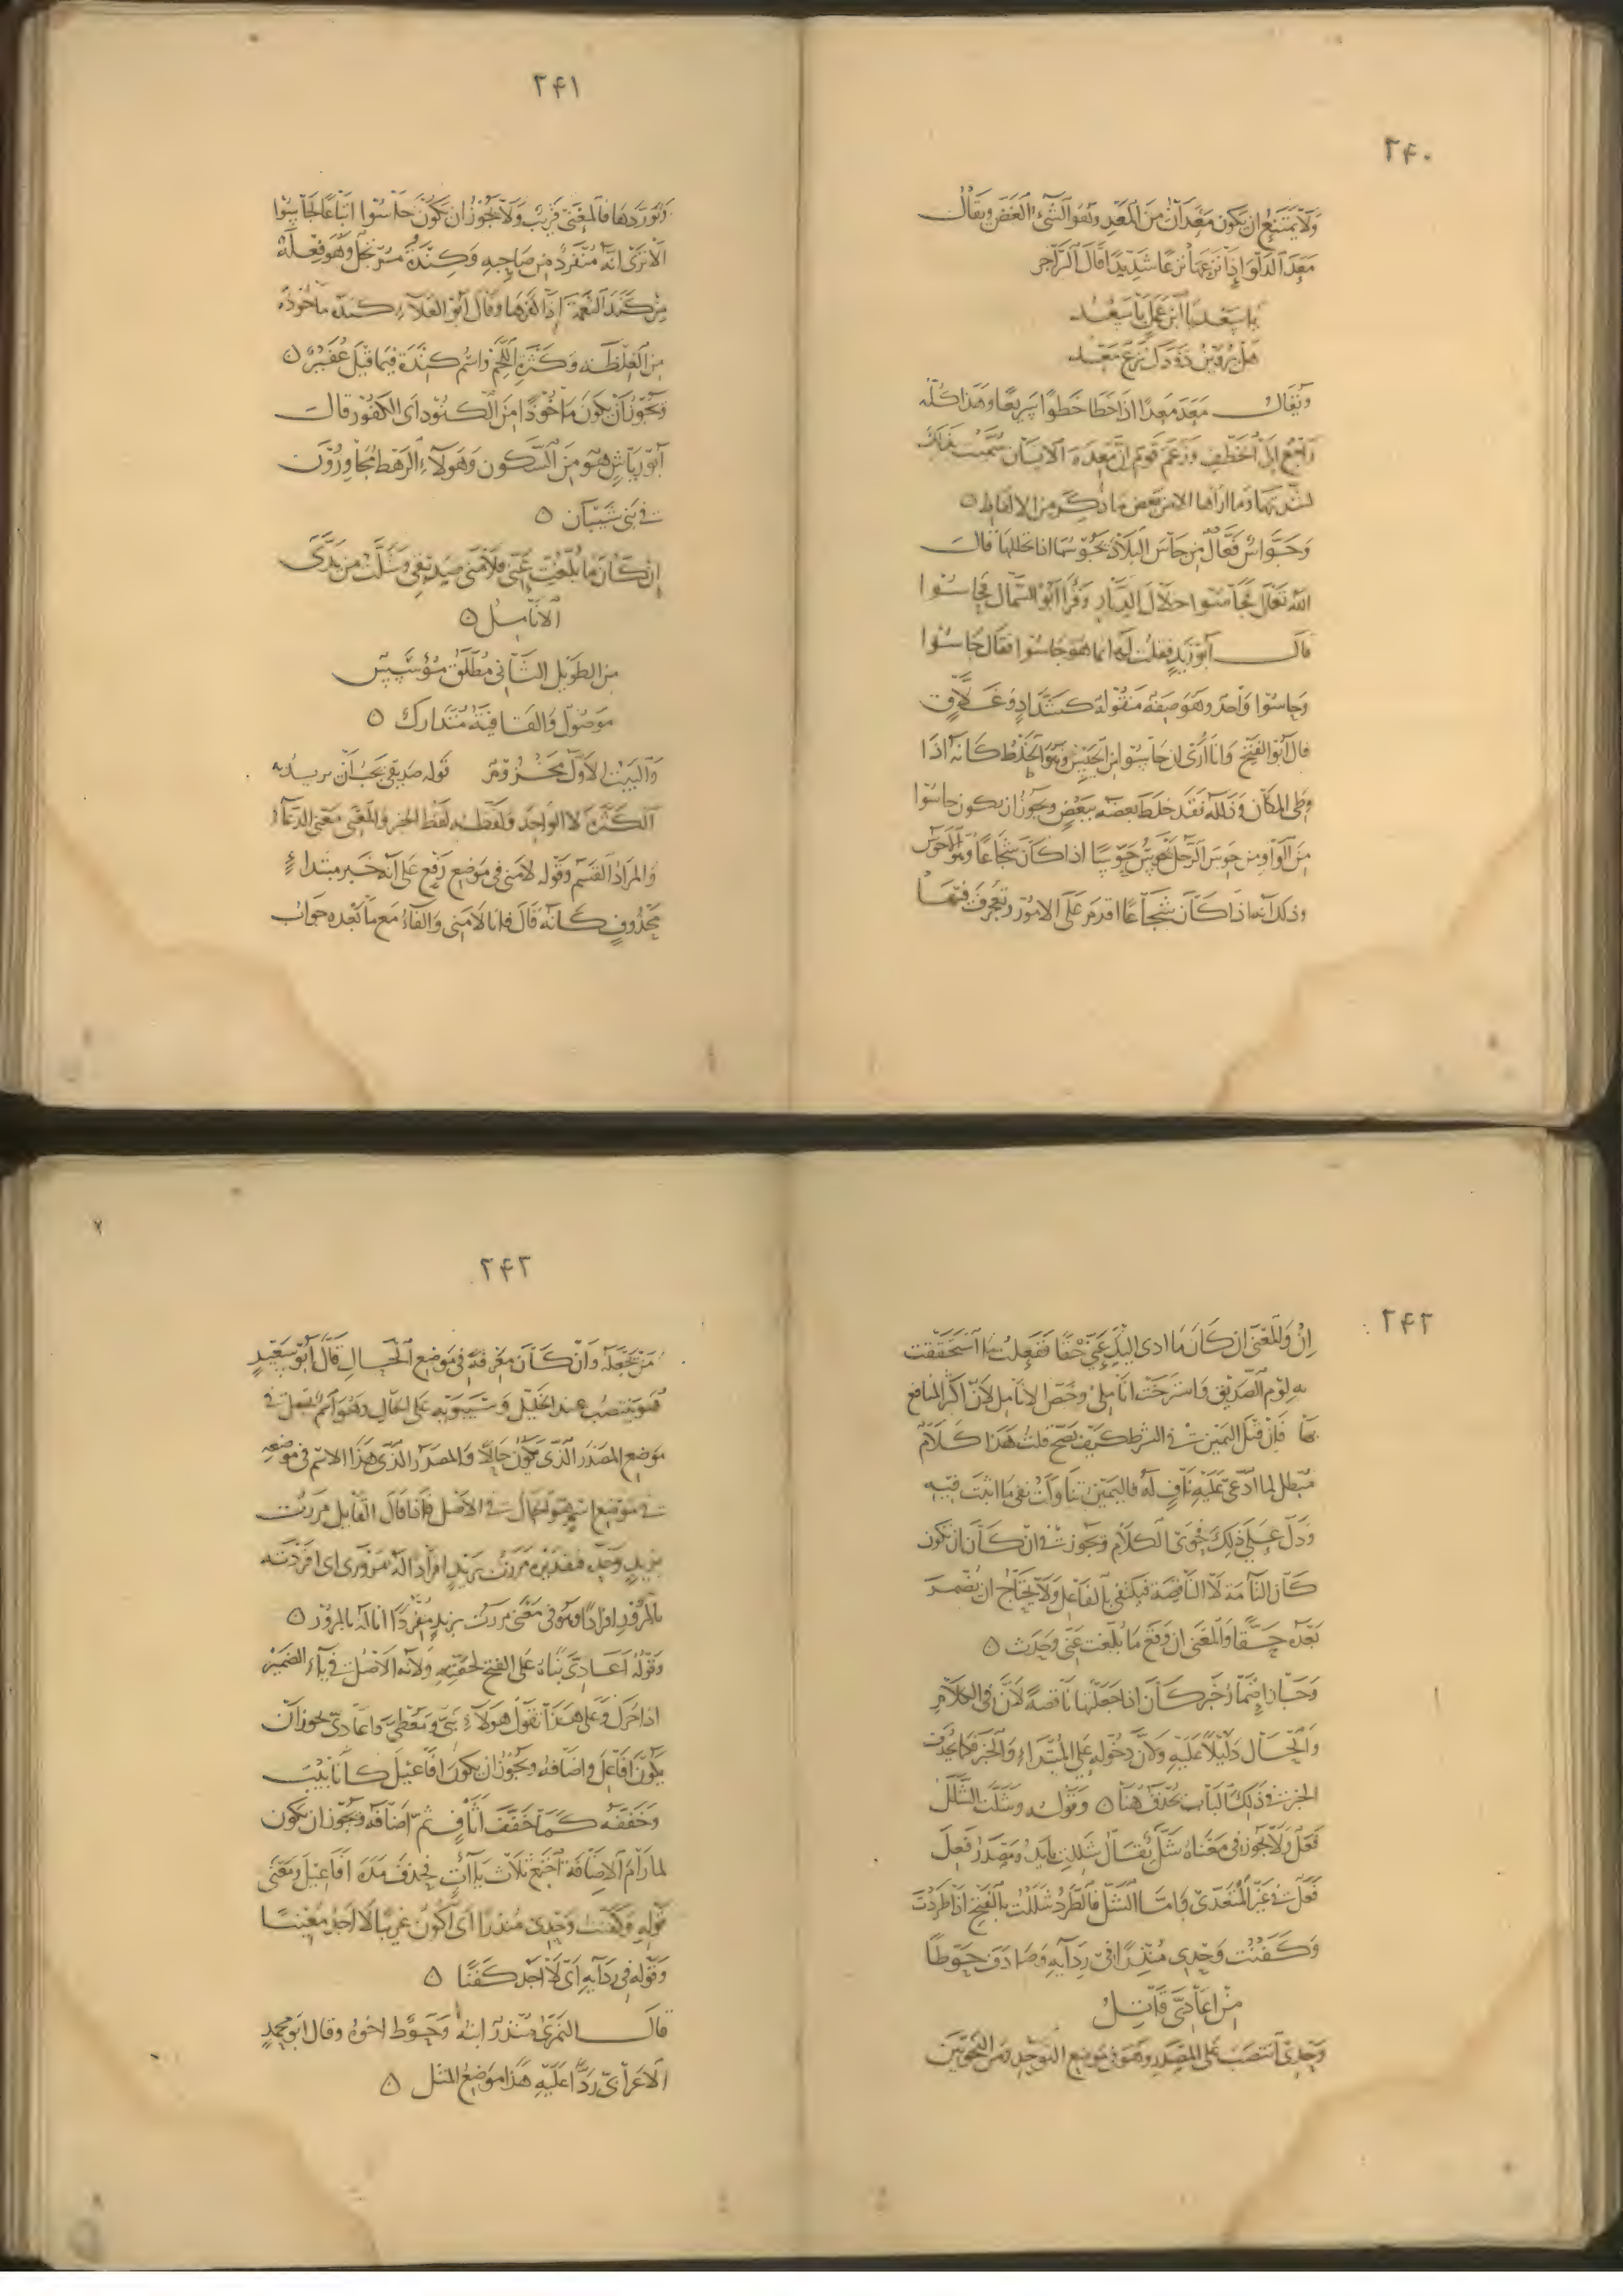 ٢۴٠
ولا يمتنع ان يكون معدان من المعد وهو الشيء الغض ويقال
معد الدلو اذا نزعها نزعا شديدا قال الراجز
يا سعد يا ابن عمل يا سعد
هل يروين ذودك نزع معد
ويقال معد معدا اذا خطا خطوا سريعا وهذا كله
راجع الى الخطف وزعم قوم ان معدة الانسان سميت بذلك
لشدتها وما اراها الا من بعض ما ذكر من الالفاظ ٥
وجواس فعال من جاس البلاد يجوسها اذا تخللها قال
الله تعالى فجاسوا خلال الديار وقرأ ابو السمال فحاسوا
قال ابو زيد فقلت له انما هو جاسوا فقال حاسوا
وجاسوا واحد وهو صفة منقولة كشداد وغلاق
قال ابو الفتح وانا ارى ان حاسوا من الحيس وهو الخلط كانه اذا
وطئ المكان وذلله فقد خلط بعضه ببعض ويجوز ان يكون حاسوا
من الواو ومن حوس الرجل يحوس حوسا اذا كان شجاعا وهو الاحوس
وذلك انه اذا كان شجاعا اقدم على الامور وتعجرف فيها
٢۴١
وتوردها فالمعنى قريب ولا يجوز ان يكون حاسوا اتباعا لجاسوا
الا ترى انه منفرد من صاحبه وكندة مرتجل وهو فعلة
من كند النعمة اذا كفرها وقال ابو العلاء كندة ماخوذة
من الغلظة وكثرة اللحم واسم كندة فيما قيل عفير ٥
ويجوز ان يكون ماخوذا من الكنود اى الكفور قال
ابو رياش هو من السكون وهولاء الرهط مجاورون
في بني شيبان ٥
ان كان ما بلغت عني فلامني صديقي وشلت من يدي
الانامل ٥
من الطويل الثاني مطلق مؤسس
موصول والقافية متدارك ٥
والبيت الاول مخزوم قوله صديقي يجب ان يريد به
الكثرة لا الواحد ولفظه لفظ الخبر والمعنى معنى الدعاء
والمراد القسم وقوله لامني في موضع رفع على انه خبر مبتداء
محذوف كانه قال فانا لامني والفاء مع ما بعده جواب
٢۴٢
ان والمعنى ان كان ما ادى اليك عني حقا ففعلت ما استحققت
به لوم الصديق واسترخت اناملي وخص الانامل لان اكثر المنافع
بها فان قيل اليمين في الشرط كيف تصح قلت هذا كلام
مبطل لما ادعى عليه ناف له فاليمين تناولت نفي ما اثبت فيه
ودل على ذلك فحوى الكلام ويجوز في ان كان ان يكون
كان التامة لا الناقصة فيكتفي بالفاعل ولا يحتاج ان يضمر
بعده حقا والمعنى ان وقع ما بلغت عني وحدث ٥
وجاز اضمار خبر كان اذا جعلتها ناقصة لان في الكلام
والحال دليلا عليه ولان دخوله على المبتداء والخبر فكما يحذف
الخبر في ذلك الباب يحذف هنا ٥ وقوله وشلت الشلل
فعل ولا يجوز في معناه شل يقال شللت يا يد ومصدر فعل
فعل في غير المتعدى واما الشل فالطرد شللت بالفتح اذا طردت
وكفنت وحدى منذرا في ردآيه وصادف حوطا
من اعادىّ قاتل
وحدى انتصب على المصدر وهو في موضع التوحد ومن النحويين
٢۴٣
من يجعله وان كان معرفة في موضع الحال قال ابو سعيد
هو ينتصب عند الخليل وسيبويه على الحال وهو اسم يستعمل في
موضع المصدر الذى يكون حالا والمصدر الذى هذا الاسم في موضعه
في موضع اسم هو الحال في الاصل فاذا قال القايل مررت
بزيد وحده فتقديره مررت بزيد افراد اله بمروري اى افردته
بالمرور افرادا وهو في معنى مررت بزيد مفردا انا له بالمرور ٥
وقوله اعادىّ بناه على الفتح لخفته ولانه الاصل في ياء الضمير
اذا حرك وعلى هذا تقول هولاء بنيّ ومعطيّ واعادى يجوز ان
يكون افاعل واضافه ويجوز ان يكون افاعيل كاناييب
وخففه كما خفف اثاف ثم اضافه ويجوز ان يكون
لما رام الاضافة اجتمع ثلاث ياآت فحذف مدة افاعيل ومعنى
قوله وكفنت وحدى منذرا اى اكون غريبا لا اجد معينا
وقوله في ردآيه اى لا اجد كفنا ٥
قال النمرى منذر ابنه وحوط اخوه وقال ابو محمد
الاعرابي ردا عليه هذا موضع المثل ٥